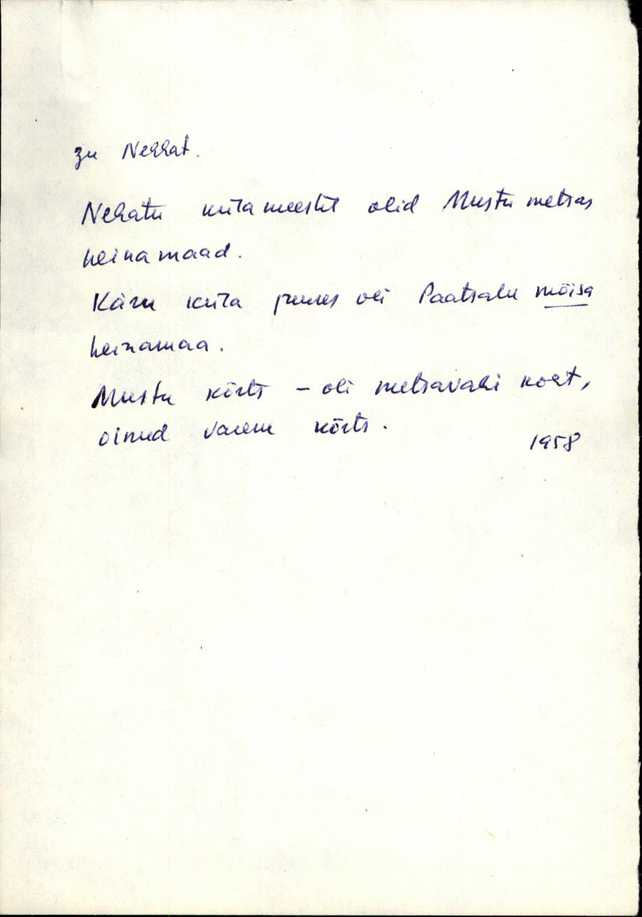 zu Nehhat.
Nehatu külameestel olid Mustu metsas
heinamaad.
Käru küla juures oli Paatsalu mõisa
heinamaa.
Mustu kõrts – oli metsavahi koht,
olnud varem kõrts.
1958